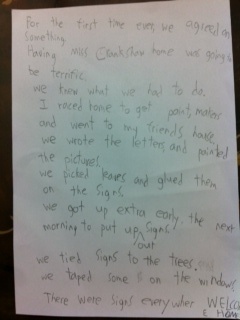 For the first time ever, we agreed on
something.
Having miss Crankshaw home was going to
be terrific.
we knew what we had to do.
I raced home to get paint, makers
and went to my friends house,
we wrote the letters and painted
the pictures!
we picked leaves and glued them
on the signs.
we got up extra early the next
morning to put up signs
our
we tied signs to the trees.
we taped some on the windows
There were signs everywher WELCO
E Home